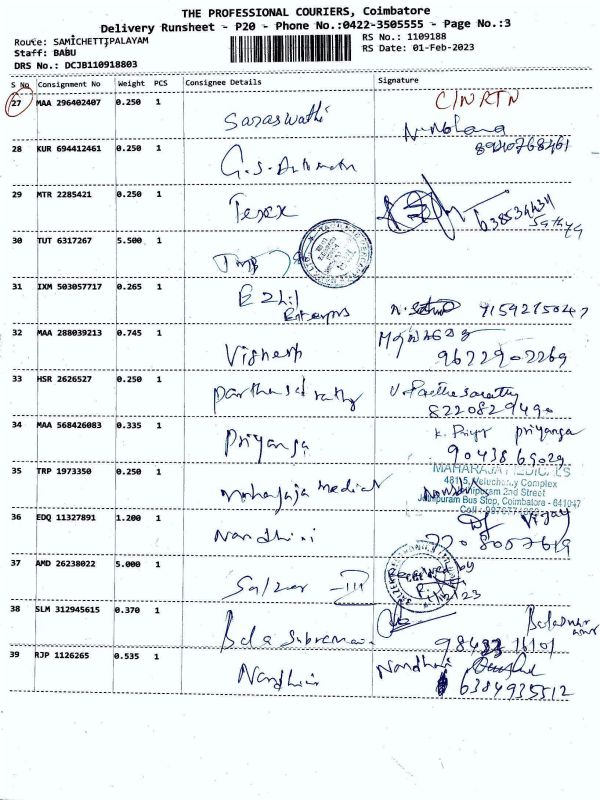 THE PROFESSIONAL COURIERS, Coimbatore
Delivery Runsheet - P20 - Phone No.:0422-3505555 - Page No.:3
Route: SAMICHETTIPALAYAM
Staff: BABU
DRS No.: DCJB110918803
RS No.: 1109188
RS Date: 01-Feb-2023
S No Consignment No Weight PCS Consignee Details Signature
27 MAA 296402407 0.250 1 Saraswathi C/N RTN
28 KUR 694412461 0.250 1 G.S.
29 MTR 2285421 0.250 1 Texex
Sathya
30 TUT 6317267 5.500 1
31 IXM 503057717 0.265 1 Ezhil
Enterprs
32 MAA 288039213 0.745 1 Vignesh 9622902269
33 HSR 2626527 0.250 1 Parthasarathy V. Parthasarathy
8220829490
34 MAA 568426083 0.335 1 Priyanga K. Priya Priyanga
9043869029
35 TRP 1973350 0.250 1 Maharaja Medical
MAHARAJA MEDICALS
481/5, Veluchamy Complex
2nd Street
Bus Stop, Coimbatore - 641047
36 EDQ 11327891 1.200 1 Nandhini Vijay
7708057619
37 AMD 26238022 5.000 1 Salzer III
Received by
38 SLM 312945615 0.370 1 Bala Subramani
39 RJP 1126265 0.535 1 Nandhini Nandhini
6384935512